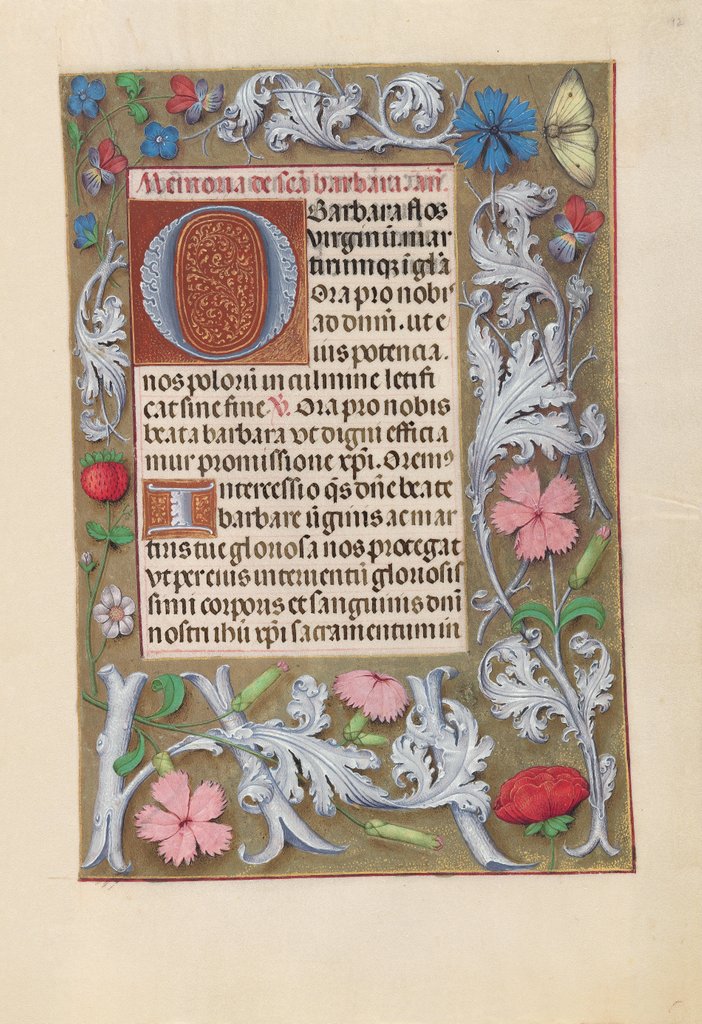 12
Memoria de scā barbara. añ.
O Barbara flos
virginū mar
tirumqz ī gl̄a
Ora pro nobis
ad dn̄m. ut e
ius potencia.
nos polorū in culmine letifi
cat sine fine. V̄. Ora pro nobis
beata barbara vt digni efficia
mur promissione xp̄i. Oremꝰ
Intercessio qs̄ dn̄e beate
barbare v̄ginis ac mar
tiris tue gloriosa nos protegat
vt per eius interuentū gloriosis
simi corporis et sanguinis dn̄i
nostri ihū xp̄i sacramentum in